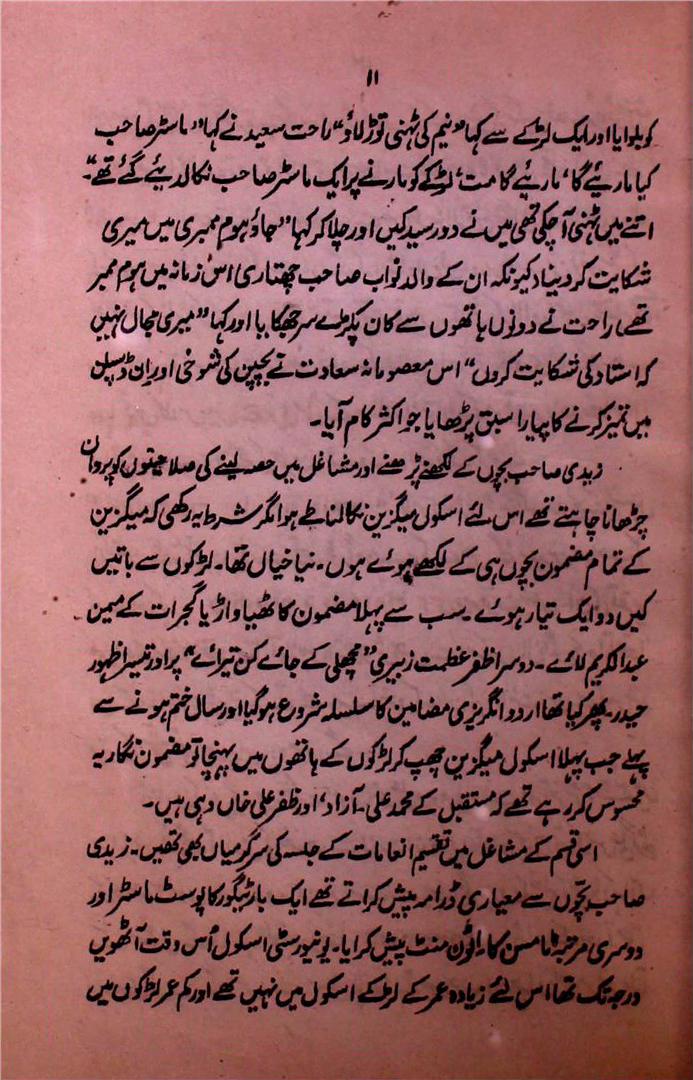 ۱۱
کو بلوایا اور ایک لڑکے سے کہا "نیم کی ٹہنی توڑ لاؤ" راحت سعید نے کہا "ماسٹر صاحب
کیا ماریئے گا، ماریئے گا مت، لڑکے کو مارنے پر ایک ماسٹر صاحب نکالدیئے گئے تھے"۔
اتنے میں ٹہنی آچکی تھی میں نے دو رسید کیں اور چلا کر کہا "جاؤ ہوم ممبری میں میری
شکایت کر دینا، کیونکہ ان کے والد نواب صاحب چھتاری اس زمانہ میں ہوم ممبر
تھے۔ راحت نے دونوں ہاتھوں سے کان پکڑے سر جھکایا اور کہا "میری مجال نہیں
کہ استاد کی شکایت کروں" اس معصومانہ سعادت نے بچپن کی شوخی اور ان ڈسپلن
میں تمیز کرنے کا پیارا سبق پڑھایا جو اکثر کام آیا۔
زیدی صاحب بچوں کے لکھنے پڑھنے اور مشاغل میں حصہ لینے کی صلاحیتوں کو پروان
چڑھانا چاہتے تھے اس لئے اسکول میگزین نکالنا طے ہوا مگر شرط یہ رکھی کہ میگزین
کے تمام مضمون بچوں ہی کے لکھے ہوئے ہوں۔ نیا خیال تھا۔ لڑکوں سے باتیں
کیں دو ایک تیار ہوئے۔ سب سے پہلا مضمون کاٹھیاواڑ یا گجرات کے میمن
عبدالکریم لائے۔ دوسرا ظفر عظمت زبیری "مچھلی کے جائے کن تیرائے" پر اور تیسرا ظہور
حیدر۔ پھر کیا تھا اردو انگریزی مضامین کا سلسلہ شروع ہوگیا اور سال ختم ہونے سے
پہلے جب پہلا اسکول میگزین چھپ کر لڑکوں کے ہاتھوں میں پہنچا تو مضمون نگار یہ
محسوس کر رہے تھے کہ مستقبل کے محمد علی۔ آزاد، اور ظفر علی خاں وہی ہیں۔
اسی قسم کے مشاغل میں تقسیم انعامات کے جلسہ کی سرگرمیاں بھی تھیں۔ زیدی
صاحب بچّوں سے معیاری ڈرامہ پیش کراتے تھے ایک بار ٹیگور کا پوسٹ ماسٹر اور
دوسری مرتبہ ٹامسن کا اٹون منٹ پیش کرایا۔ یونیورسٹی اسکول اُس وقت آٹھویں
درجہ تک تھا اس لئے زیادہ عمر کے لڑکے اسکول میں نہیں تھے اور کم عمر لڑکوں میں